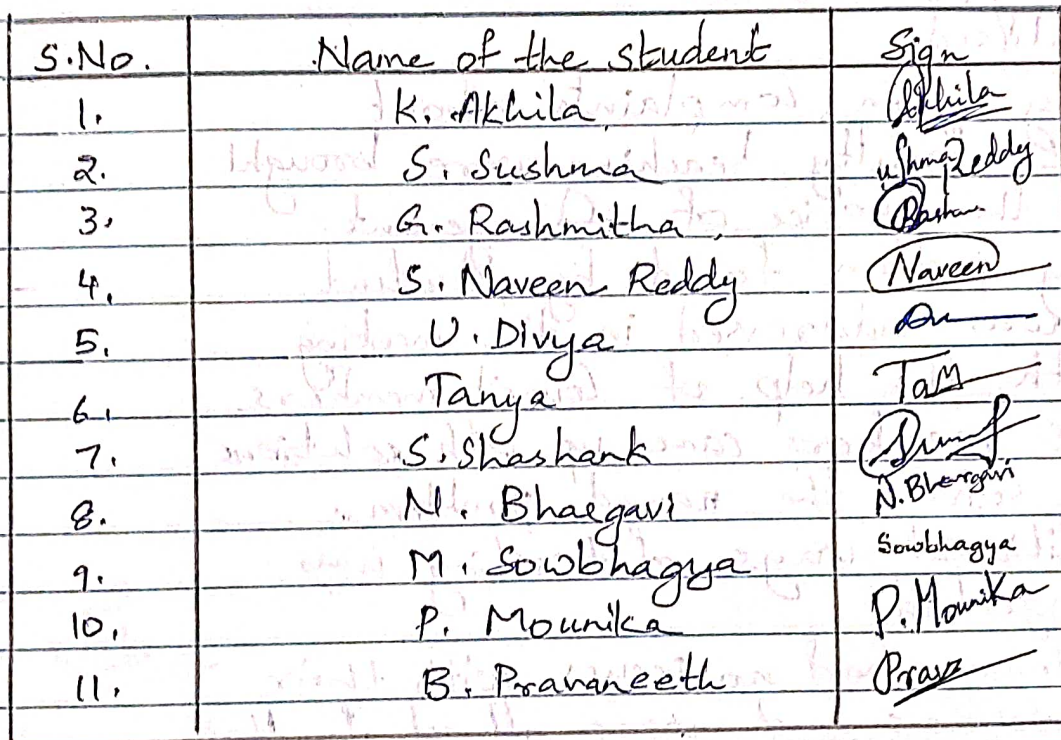 S.No. Name of the student Sign
1. K. Akhila Akhila
2. S. Sushma Reddy
3. G. Rashmitha
4. S. Naveen Reddy Naveen
5. U. Divya
6. Tanya
7. S. Shashank
8. N. Bhargavi N. Bhargavi
9. M. Sowbhagya Sowbhagya
10. P. Mounika P. Mounika
11. B. Pravaneeth